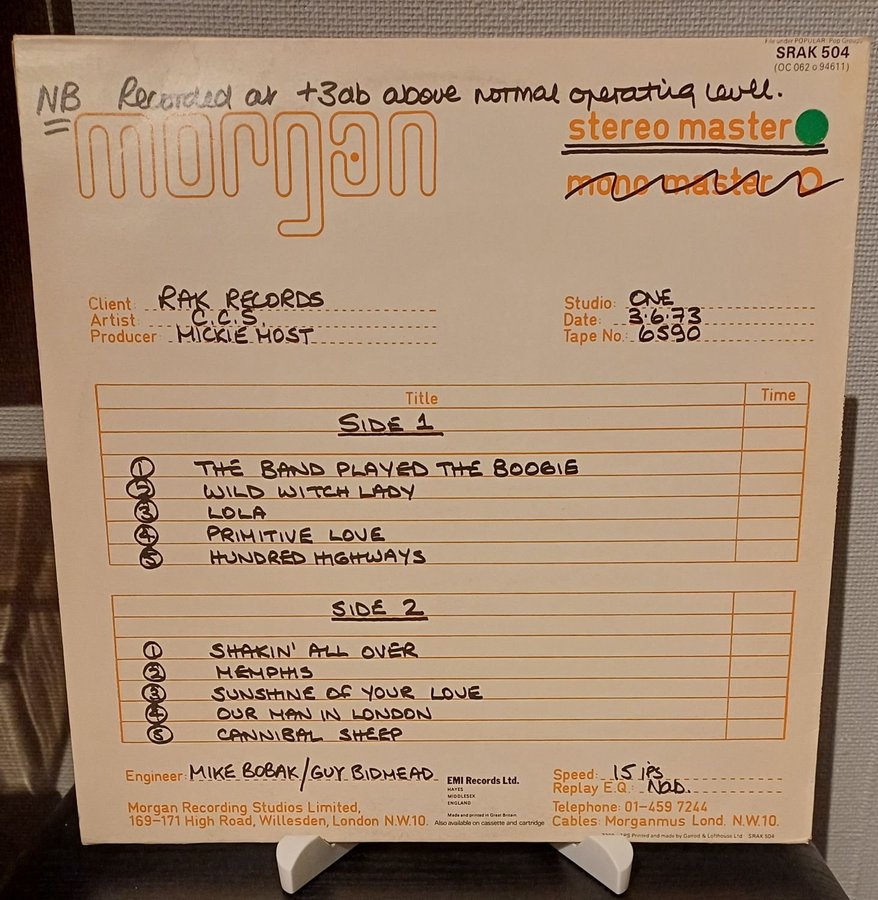 File under POPULAR: Pop Groups
SRAK 504
(OC 062 o 94611)
NB Recorded at +3db above normal operating level.
morgan
stereo master
mono master
Client: RAK RECORDS
Artist: C.C.S.
Producer: MICKIE MOST
Studio: ONE
Date: 3.6.73
Tape No.: 6590
Title Time
SIDE 1
1 THE BAND PLAYED THE BOOGIE
2 WILD WITCH LADY
3 LOLA
4 PRIMITIVE LOVE
5 HUNDRED HIGHWAYS
SIDE 2
1 SHAKIN' ALL OVER
2 MEMPHIS
3 SUNSHINE OF YOUR LOVE
4 OUR MAN IN LONDON
5 CANNIBAL SHEEP
Engineer: MIKE BOBAK/GUY BIDMEAD
EMI Records Ltd.
HAYES
MIDDLESEX
ENGLAND
Made and printed in Great Britain
Also available on cassette and cartridge
Speed: 15 ips
Replay E.Q.: NAB.
Morgan Recording Studios Limited,
169-171 High Road, Willesden, London N.W.10.
Telephone: 01-459 7244
Cables: Morganmus Lond. N.W.10.
Printed and made by Garrod & Lofthouse Ltd SRAK 504